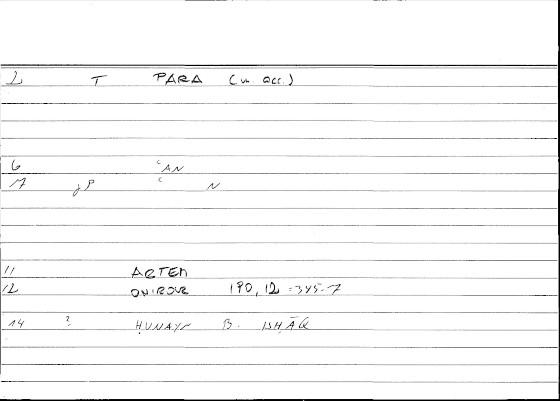 2 T PARA (w. acc.)
6 ʿAN
7 ʿ N
11 ARTEM
12 ONIROCR 190,12 = 345-7
14 ? ḤUNAYN B. ISḤĀQ